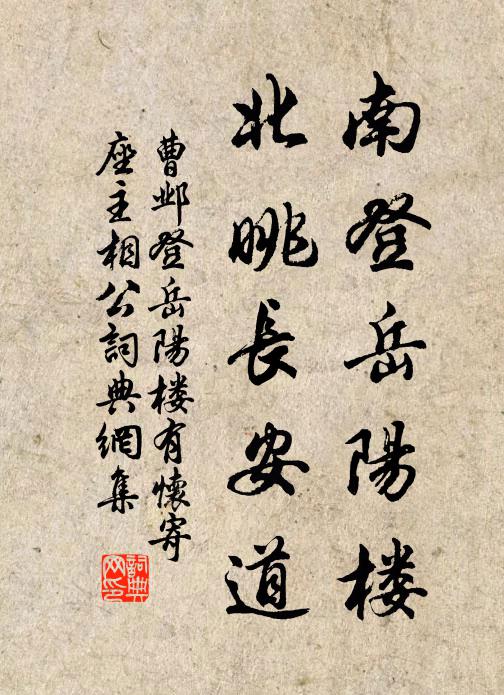 南登岳陽楼
北眺長安道
曹邺登岳陽楼有懷寄
座主相公詞典網集
詞典
网印